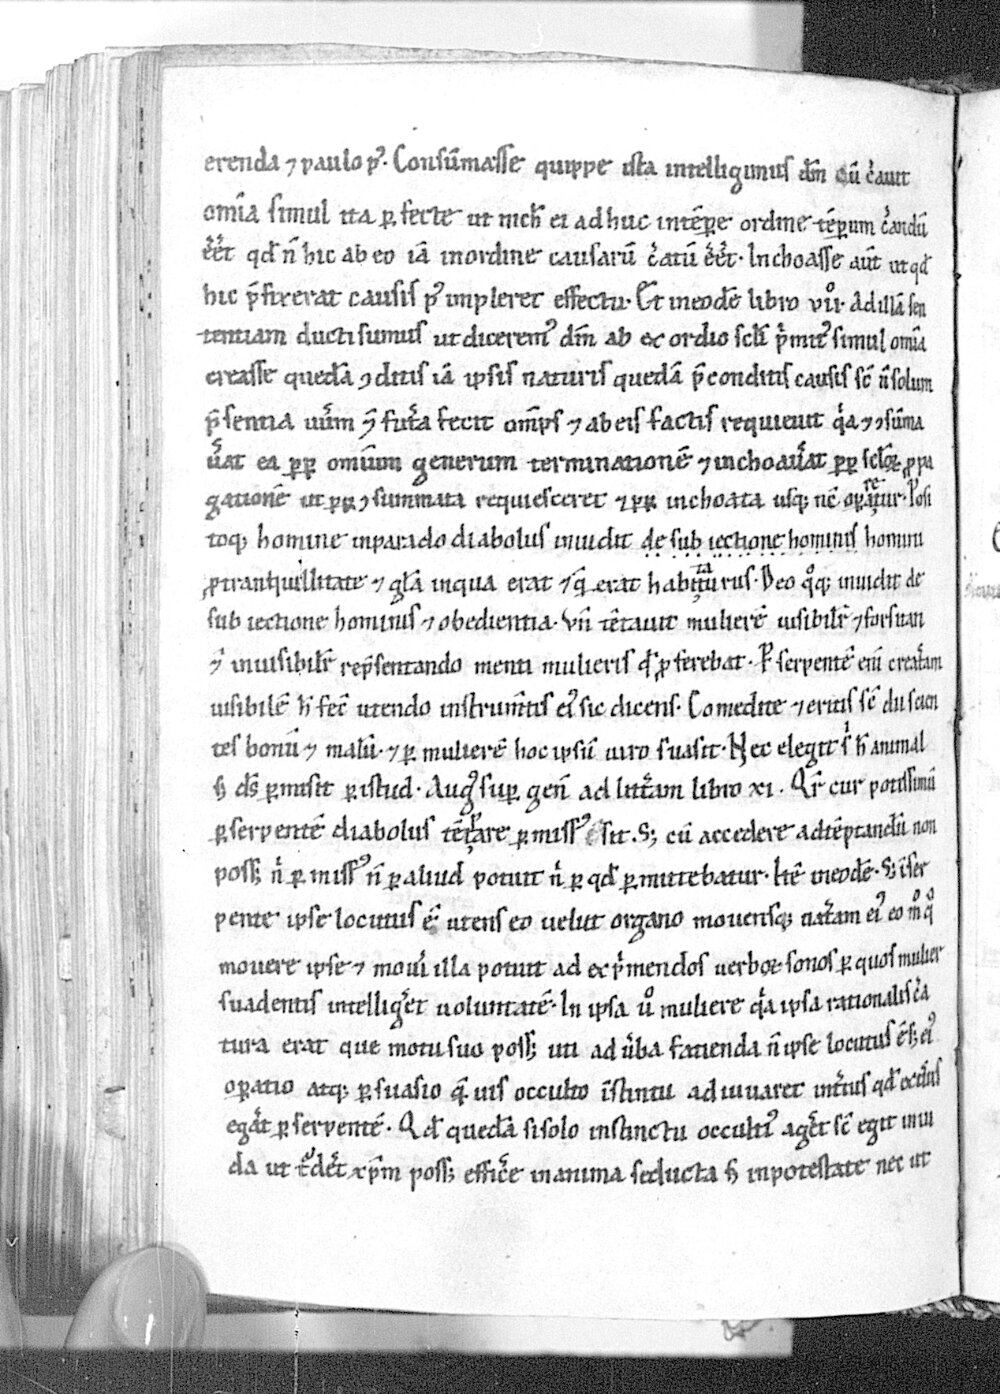 erenda ⁊ paulo pꝰ. Consūmasse quippe ista intelligimus dm̄ cū cͥauit
omīa simul ita ꝑfecte ut nich̄ ei adhuc intēpe ordine tēporum cͥandū
eēt qd̄ n̄ hic ab eo iā inordine causarū cͥatū eēt. Inchoasse aūt ut qd̄
hic p̄fixerat causis pꝰ impleret effectu. Et ineodē libro vii. Ad illā sen
tentiam ducti sumus ut diceremꝰ dm̄ ab exordio scl̄i pͥmitꝰ simul omīa
creasse quedā ꝯditis iā ipsis naturis quedā p̄conditis causis sc̄ n̄ solum
p̄sentia uūm ⁊̄ futͣa fecit om̄ps ⁊ ab eis factis requieuit qͥa ⁊ ꝯsūma
u̾at ea ꝓꝑ omīum generum terminationē ⁊ inchoau̾at ꝓꝑ scl̄oꝝ ꝓpa
gationē ut ꝓꝑ ꝯsummata requiesceret ⁊ ꝓꝑ inchoata usqꝫ nc̄ oꝑaretur. Posi
toqꝫ homine inparadḋo diabolus inuidit de subiectione hominis homini
ꝓ tranquillitate ⁊ gl̄a inqua erat ⁊ q̄ erat habiturus. Deo qͦqꝫ inuidit de
subiectione hominis ⁊ obedientia. Vn̄ tētauit mulierē uisibilr̄ ⁊ forsitan
⁊̄ inuisibilr̄ rep̄sentando menti mulieris qd̄ ꝓferebat. Per serpentē eni creatam
uisibilē h̄ fec̄ utendo instrum̄tis eiꝰ sic dicens. Comedite ⁊ eritis sc̄ dii scien
tes bonū ⁊ malū. ⁊ ꝑ mulierē hoc ipsū uiro suasit. Nec elegit sͥ h̄ animal
s̄ ds̄ ꝑmisit ꝑ istud. Augꝰ suꝑ gen̄ ad litt̄am libro xi. Qr̄ cur potissimū
ꝑ serpentē diabolus tētare ꝑmissꝰ sit. Sꝫ cū accedere ad tēptandū non
possꝫ nͥ ꝑmissꝰ n̄ ꝑ aliud potuit nͥ ꝑ qd̄ ꝑmittebatur. Itē ineodē. Sꝫ ī ser
pente ipse locutus ē utens eo uelut organo mouensqꝫ nat̄am eiꝰ eo mͦ qͦ
mouere ipse ⁊ moūi illa potuit ad expͥmendos uerboꝝ sonos ꝑ quos mulier
suadentis intelliget uoluntatē. In ipsa uͦ muliere qͥa ipsa rationalis cͥa
tura erat que motu suo possꝫ uti ad u̾ba facienda n̄ ipse locutus ē sꝫ eiꝰ
oꝑatio atqꝫ ꝑsuasio q̄uis occulto īstinctu adiuuaret int̾ius qd̄ ext̾ius
egat ꝑ serpentē. Qd̄ quedā si solo instinctu occultiꝰ aget sc̄ egit in iu
da ut tͣdēt xp̄m possꝫ efficͤe inanima seducta s̄ inpotestate nec ut